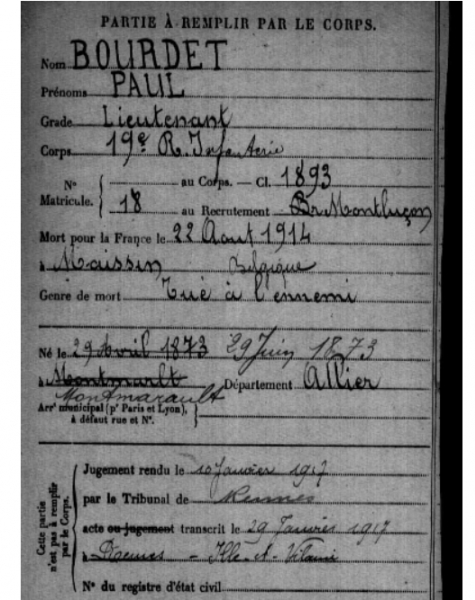 PARTIE À REMPLIR PAR LE CORPS.
Nom BOURDET
Prénoms PAUL
Grade Lieutenant
Corps 19e R. Infanterie
N° au Corps. — Cl. 1893
Matricule. 18 au Recrutement Br. Montluçon
Mort pour la France le 22 Aout 1914
à Maissin Belgique
Genre de mort Tué à l'ennemi
Né le 29 Avril 1873 29 Juin 1873
à Montmarlt Département Allier
Montmarault
Arrt municipal (pr Paris et Lyon),
à défaut rue et N°.
Cette partie n'est pas à remplir par le Corps.
Jugement rendu le 10 Janvier 1917
par le Tribunal de Rennes
acte ou jugement transcrit le 29 Janvier 1917
à Rennes - Ille-et-Vilaine
N° du registre d'état civil